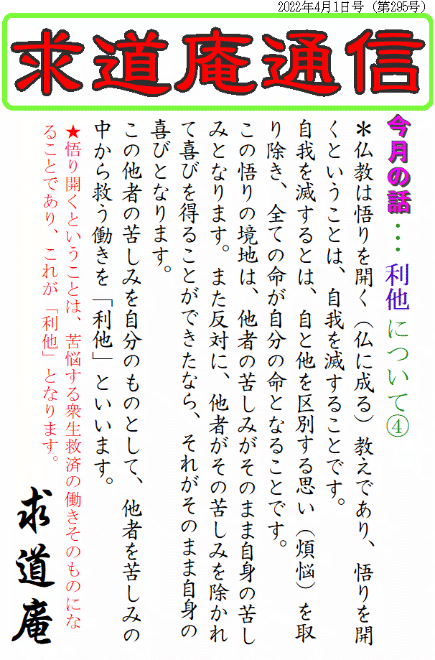 2022年4月1日号（第295号）
求道庵通信
今月の話…利他について④
＊仏教は悟りを開く（仏に成る）教えであり、悟りを開
くということは、自我を滅することです。
自我を滅するとは、自と他を区別する思い（煩悩）を取
り除き、全ての命が自分の命となることです。
この悟りの境地は、他者の苦しみがそのまま自身の苦し
みとなります。また反対に、他者がその苦しみを除かれ
て喜びを得ることができたなら、それがそのまま自身の
喜びとなります。
この他者の苦しみを自分のものとして、他者を苦しみの
中から救う働きを「利他」といいます。
★悟り開くということは、苦悩する衆生救済の働きそのものにな
ることであり、これが「利他」となります。
求道庵